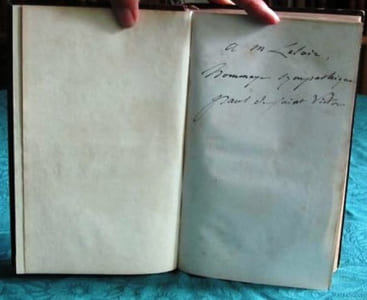 a M Leloir,
hommage sympathique
Paul de Saint Victor